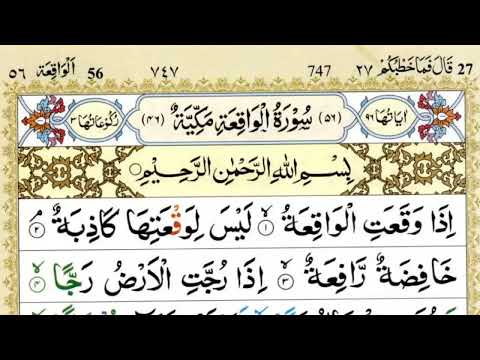 27 قَالَ فَمَا خَطْبُكُمْ ٢٧ 747 ٧٤٧ 56 اَلْوَاقِعَة ٥٦
اٰيَاتُهَا ٩٦ (٥٦) سُوْرَةُ الْوَاقِعَةِ مَكِّيَّةٌ (٤٦) رُكُوْعَاتُهَا ٣
بِسْمِ اللّٰهِ الرَّحْمٰنِ الرَّحِيْمِ
اِذَا وَقَعَتِ الْوَاقِعَةُ ۙ١ لَيْسَ لِوَقْعَتِهَا كَاذِبَةٌ ۘ٢
خَافِضَةٌ رَّافِعَةٌ ۙ٣ اِذَا رُجَّتِ الْاَرْضُ رَجًّا ۙ٤